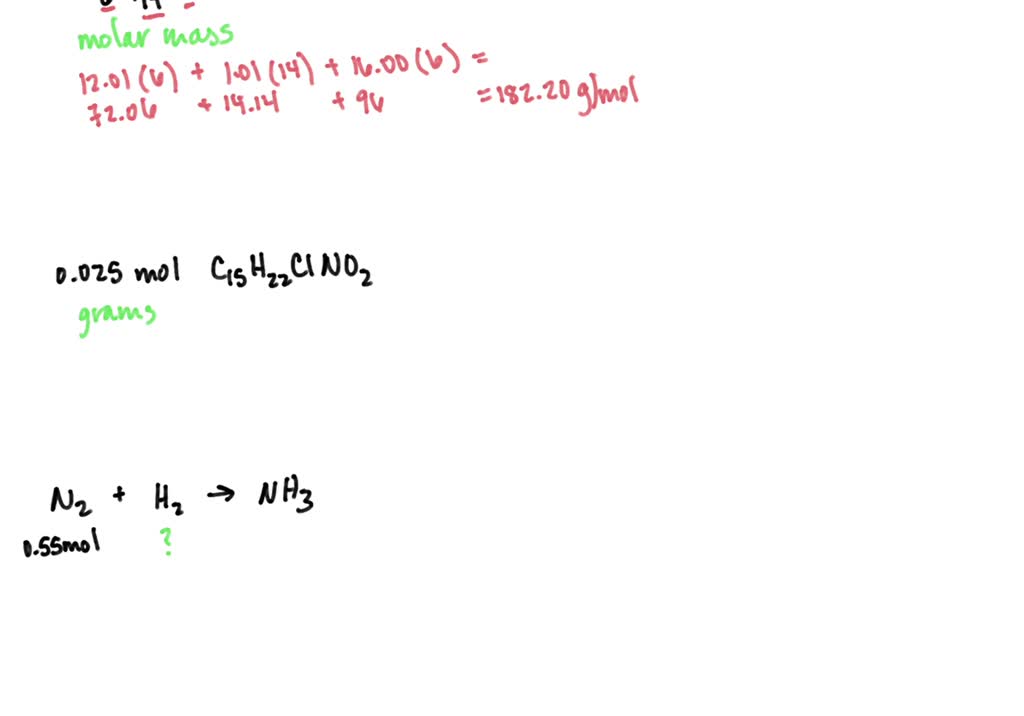 molar mass
12.01(6) + 1.01(14) + 16.00(6) =
72.06 + 14.14 + 96 = 182.20 g/mol
0.025 mol C₁₅H₂₂ClNO₂
grams
N₂ + H₂ → NH₃
0.55mol ?